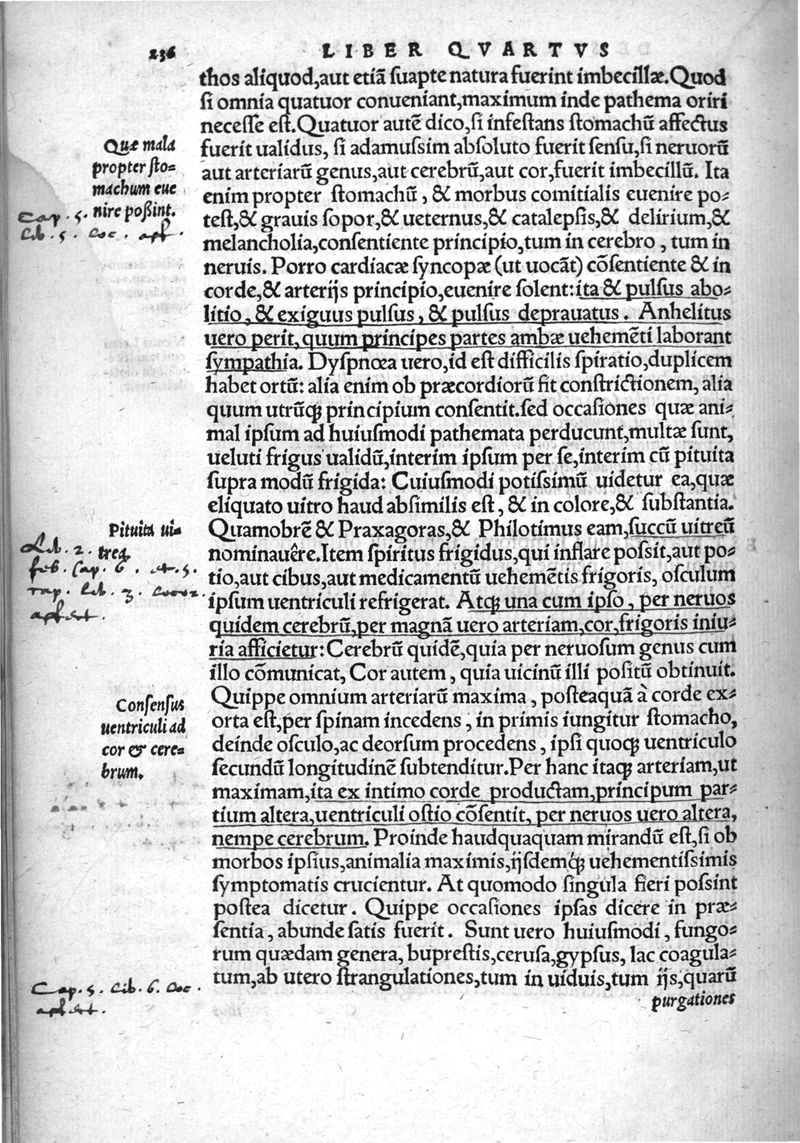 236 LIBER QVARTVS
thos aliquod,aut etiã ſuapte natura fuerint imbecillæ.Quod
ſi omnia quatuor conueniant,maximum inde pathema oriri
neceſſe eſt.Quatuor autẽ dico,ſi infeſtans ſtomachũ affectus
fuerit ualidus, ſi adamuſsim abſoluto fuerit ſenſu,ſi neruorũ
aut arteriarũ genus,aut cerebrũ,aut cor,fuerit imbecillũ. Ita
enim propter ſtomachũ, & morbus comitialis euenire po⸗
teſt,& grauis ſopor,& ueternus,& catalepſis,& delirium,&
melancholia,conſentiente principio,tum in cerebro, tum in
neruis. Porro cardiacæ ſyncopæ (ut uocãt) cõſentiente & in
corde,& arterijs principio,euenire ſolent:ita & pulſus abo⸗
litio, & exiguus pulſus, & pulſus deprauatus. Anhelitus
uero perit,quum principes partes ambæ uehemẽti laborant
ſympathia. Dyſpnœa uero,id eſt difficilis ſpiratio,duplicem
habet ortũ: alia enim ob præcordiorũ fit conſtrictionem, alia
quum utrũq; principium conſentit.ſed occaſiones quæ ani⸗
mal ipſum ad huiuſmodi pathemata perducunt,multæ ſunt,
ueluti frigus ualidũ,interim ipſum per ſe,interim cũ pituita
ſupra modũ frigida: Cuiuſmodi potiſsimũ uidetur ea,quæ
eliquato uitro haud abſimilis eſt, & in colore,& ſubſtantia.
Quamobrẽ & Praxagoras,& Philotimus eam,ſuccũ uitreũ
nominauêre.Item ſpiritus frigidus,qui inflare poſsit,aut po⸗
tio,aut cibus,aut medicamentũ uehemẽtis frigoris, oſculum
ipſum uentriculi refrigerat. Atq; una cum ipſo, per neruos
quidem cerebrũ,per magnã uero arteriam,cor,frigoris iniu⸗
ria afficietur:Cerebrũ quidẽ,quia per neruoſum genus cum
illo cõmunicat, Cor autem, quia uicinũ illi poſitũ obtinuit.
Quippe omnium arteriarũ maxima, poſteaquã à corde ex⸗
orta eſt,per ſpinam incedens, in primis iungitur ſtomacho,
deinde oſculo,ac deorſum procedens, ipſi quoq; uentriculo
ſecundũ longitudinẽ ſubtenditur.Per hanc itaq; arteriam,ut
maximam,ita ex intimo corde productam,principum par⸗
tium altera,uentriculi oſtio cõſentit, per neruos uero altera,
nempe cerebrum. Proinde haudquaquam mirandũ eſt,ſi ob
morbos ipſius,animalia maximis,ijſdemq́; uehementiſsimis
ſymptomatis crucientur. At quomodo ſingula fieri poſsint
poſtea dicetur. Quippe occaſiones ipſas dicere in præ⸗
ſentia, abunde ſatis fuerit. Sunt uero huiuſmodi, fungo⸗
rum quædam genera, bupreſtis,ceruſa,gypſus, lac coagula⸗
tum,ab utero ſtrangulationes,tum in uiduis,tum ijs,quarũ
purgationes
Quæ mala
propter ſto⸗
machum eue
nire poßint.
Cap. 5.
Lib. 5. Loc. aff.
Pituita ui⸗
trea.
Lib. 2.
feb. Cap. 6. et. 5.
Conſenſus
uentriculi ad
cor & cere⸗
brum.
Cap. 5. Lib. 6. Loc.